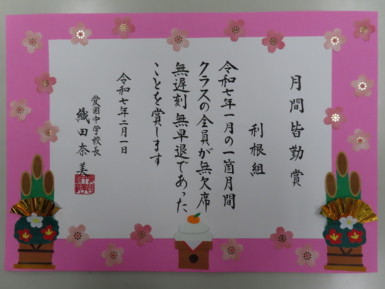 月間皆勤賞
利根組
令和七年一月の一箇月間
クラスの全員が無欠席
無遅刻 無早退であった
ことを賞します
令和七年二月一日
愛国中学校長
織田奈美